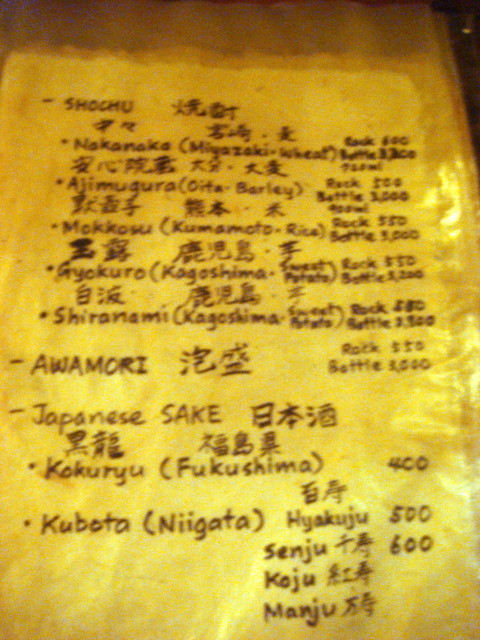 - SHOCHU 焼酎
中々 宮崎・麦
• Nakanaka (Miyazaki-Wheat) Rock 600
Bottle
720ml
安心院蔵 大分・大麦
• Ajimugura (Oita-Barley) Rock 500
Bottle 3,000
900ml
黙壷子 熊本・米
• Mokkosu (Kumamoto-Rice) Rock 550
Bottle 3,000
玉露 鹿児島・芋
• Gyokuro (Kagoshima-Sweet Potato) Rock 550
Bottle 3,200
白波 鹿児島・芋
• Shiranami (Kagoshima-Sweet Potato) Rock 550
Bottle 3,300
- AWAMORI 泡盛 Rock 550
Bottle 3,000
- Japanese SAKE 日本酒
黒龍 福島県
• Kokuryu (Fukushima) 400
百寿
• Kubota (Niigata) Hyakuju 500
Senju 千寿 600
Koju 紅寿
Manju 万寿